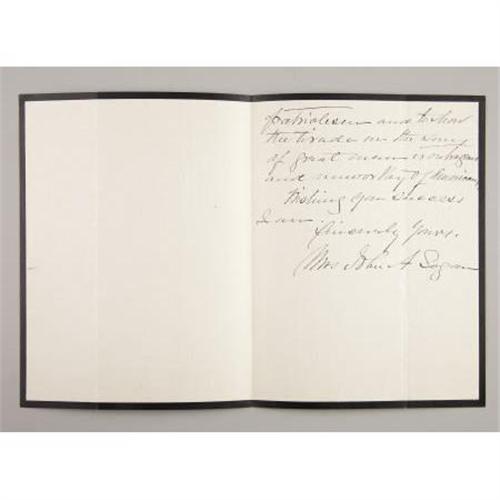 patriotism and to show
the tirade on the sons
of great men is outrageous
and unworthy of Americans,
Wishing you success
I am.
Sincerely Yours.
Mrs John A Logan